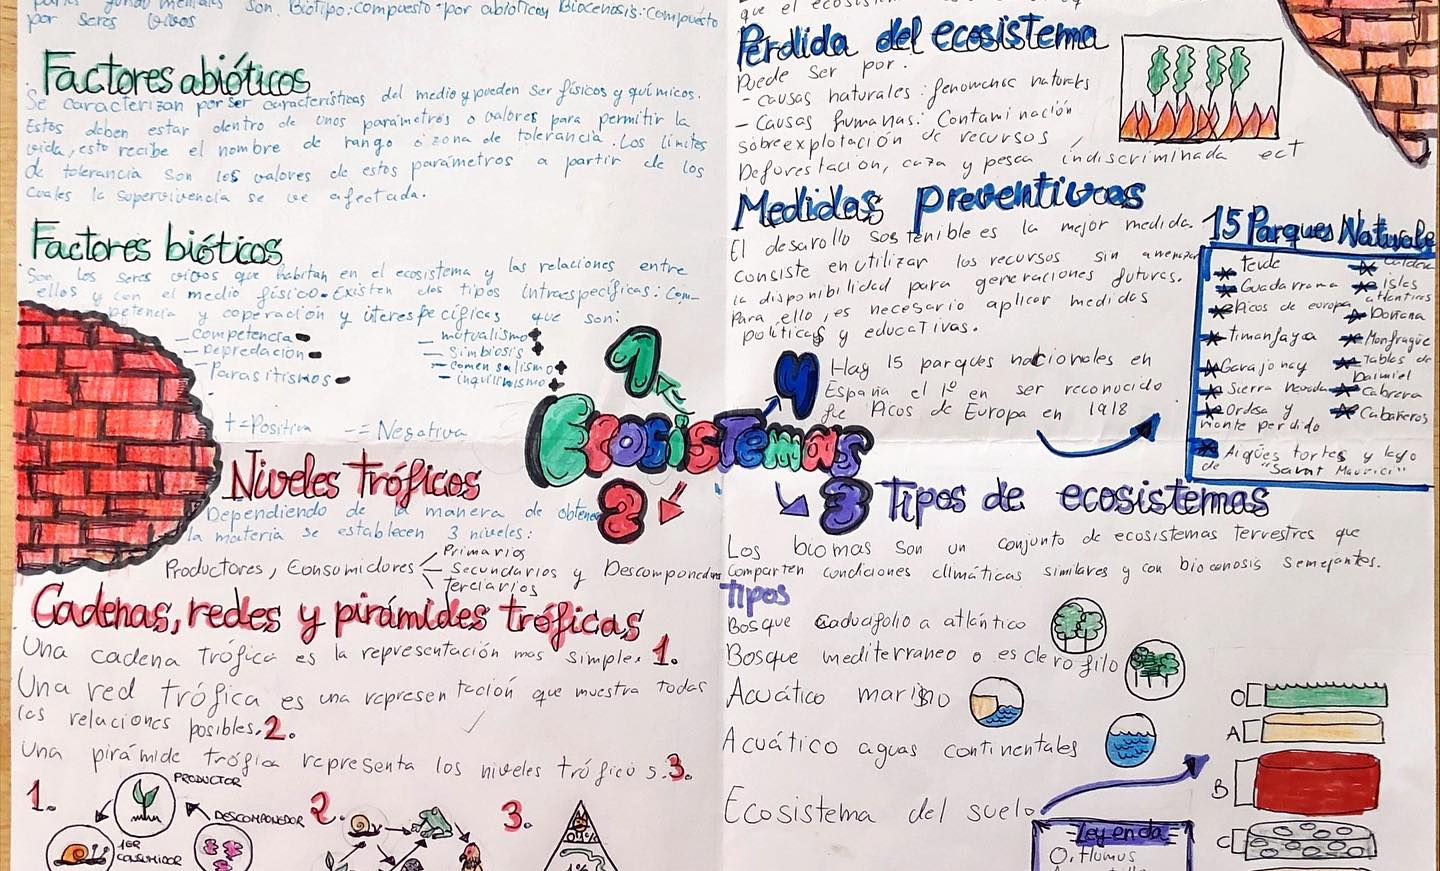 son Biotipo: compuesto por abióticos y Biocenosis: Compuesto
por seres vivos
Factores abióticos
Se caracterizan por ser características del medio y pueden ser físicos y químicos.
Estos deben estar dentro de unos parámetros o valores para permitir la
vida, esto recibe el nombre de rango o zona de tolerancia. Los límites
de tolerancia son los valores de estos parámetros a partir de los
cuales la supervivencia se ve afectada.
Factores bióticos
Son los seres vivos que habitan en el ecosistema y las relaciones entre
ellos y con el medio físico. Existen dos tipos intraespecíficas: Com-
petencia y coperación y interespecíficas que son:
- competencia -
- Depredación -
- Parasitismos -
- mutualismo +
- Simbiosis +
- comensalismo +
- inquilinismo +
+ = Positiva - = Negativa
Niveles tróficos
Dependiendo de la manera de obtener
la materia se establecen 3 niveles:
Productores, Consumidores
Primarios
Secundarios y Descomponedores
Terciarios
Cadenas, redes y pirámides tróficas
Una cadena trófica es la representación mas simple. 1.
Una red trófica es una representación que muestra todas
las relaciones posibles. 2.
Una pirámide trófica representa los niveles tróficos. 3.
1.
PRODUCTOR
DESCOMPONEDOR
1ER
CONSUMIDOR
2.
3.
1
Ecosistemas
4
2
3
que el ecosis
Pérdida del ecosistema
Puede ser por.
- causas naturales: fenomenos naturales
- Causas humanas: Contaminación
sobreexplotación de recursos,
Deforestación, caza y pesca indiscriminada ect
Medidas preventivas
El desarollo sostenible es la mejor medida.
Consiste en utilizar los recursos sin amenazar
la disponibilidad para generaciones futuras.
Para ello, es necesario aplicar medidas
politicas y educativas.
Hay 15 parques nacionales en
España el 1º en ser reconocido
fue Picos de Europa en 1918
15 Parques Naturale
Teide
Guadarrama
Picos de europa
Timanfaya
Garajonay
Sierra nevada
Ordesa y
monte perdido
Aigües tortes y lago
de "Sant Maurici"
Islas
atlánticas
Doñana
Monfragüe
Tablas de
Daimiel
Cabrera
Cabañeros
Tipos de ecosistemas
Los biomas son un conjunto de ecosistemas terrestres que
comparten condiciones climáticas similares y con biocenosis semejantes.
Tipos
Bosque caducifolio a atlántico
Bosque mediterraneo o esclerofilo
Acuático marino
Acuático aguas continentales
Ecosistema del suelo
O
A
B
C
Leyenda
O. Humus